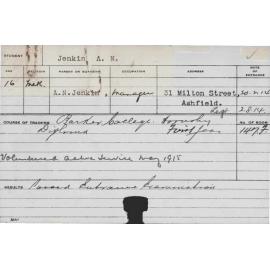 STUDENT Jenkin, A. N.
AGE RELIGION PARENT OR GUARDIAN OCCUPATION ADDRESS DATE OF ENTRANCE
16 Meth. A.N.Jenkin, Manager 31 Milton Street, 20.2.14
Ashfield. Left 2.8.14
COURSE OF TRAINING Barker College Hornsby No. OF ROOM
Diploma First Year
Volunteered active service May 1915
RESULTS Passed Entrance Examination
MAY